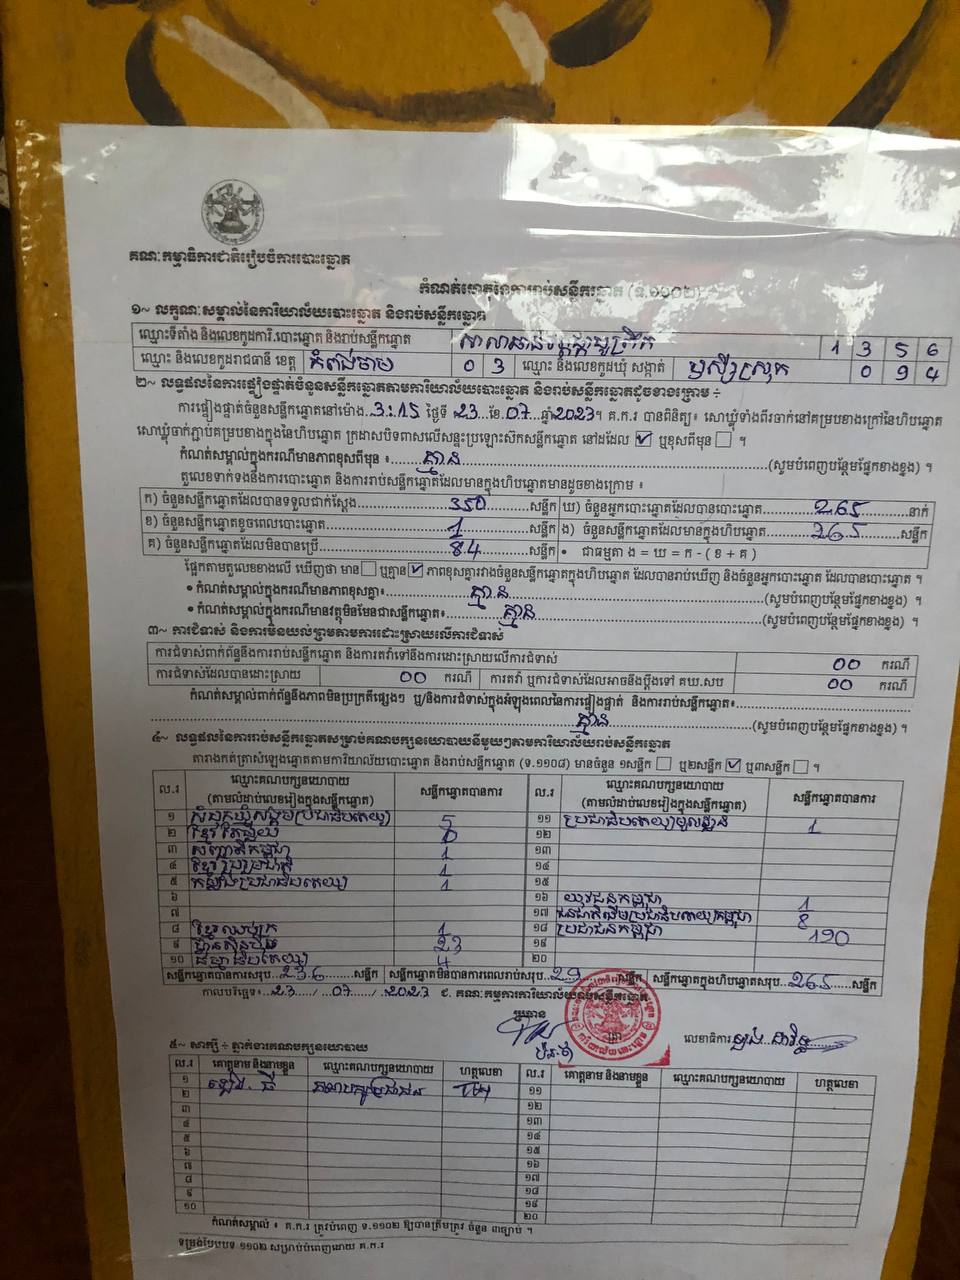 គណៈកម្មាធិការជាតិរៀបចំការបោះឆ្នោត
កំណត់ហេតុនៃការរាប់សន្លឹកឆ្នោត (ទ.១១០២)
១~ លក្ខណៈសម្គាល់នៃការិយាល័យបោះឆ្នោត និងរាប់សន្លឹកឆ្នោត
ឈ្មោះទីតាំង និងលេខកូដការិ.បោះឆ្នោត និងរាប់សន្លឹកឆ្នោត 1 3 5 6
ឈ្មោះ និងលេខកូដរាជធានី ខេត្ត កំពង់ចាម 0 3 ឈ្មោះ និងលេខកូដឃុំ សង្កាត់ ឫស្សីស្រុក 0 9 4
២~ លទ្ធផលនៃការផ្ទៀងផ្ទាត់ចំនួនសន្លឹកឆ្នោតតាមការិយាល័យបោះឆ្នោត និងរាប់សន្លឹកឆ្នោតដូចខាងក្រោម ÷
ការផ្ទៀងផ្ទាត់ចំនួនសន្លឹកឆ្នោតនៅម៉ោង 3:15 ថ្ងៃទី 23 ខែ 07 ឆ្នាំ 2023។ គ.ក.រ បានពិនិត្យ៖ សោឃ្លុំទាំងពីរចាក់នៅគម្របខាងក្រៅនៃហិបឆ្នោត
សោឃ្លុំចាក់ភ្ជាប់គម្របខាងក្នុងនៃហិបឆ្នោត ក្រដាសបិទពាសលើសន្ទះប្រឡោះស៊កសន្លឹកឆ្នោត នៅដដែល ☑ ឬខុសពីមុន ☐ ។
កំណត់សម្គាល់ក្នុងករណីមានភាពខុសពីមុន ៖ គ្មាន (សូមបំពេញបន្ថែមផ្នែកខាងខ្នង) ។
តួលេខទាក់ទងនឹងការបោះឆ្នោត និងការរាប់សន្លឹកឆ្នោតដែលមានក្នុងហិបឆ្នោតមានដូចខាងក្រោម ៖
ក) ចំនួនសន្លឹកឆ្នោតដែលបានទទួលជាក់ស្តែង 350 សន្លឹក ឃ) ចំនួនអ្នកបោះឆ្នោតដែលបានបោះឆ្នោត 265 នាក់
ខ) ចំនួនសន្លឹកឆ្នោតខូចពេលបោះឆ្នោត 1 សន្លឹក ង) ចំនួនសន្លឹកឆ្នោតដែលមានក្នុងហិបឆ្នោត 265 សន្លឹក
គ) ចំនួនសន្លឹកឆ្នោតដែលមិនបានប្រើ 84 សន្លឹក • ជាធម្មតា ង = ឃ = ក - ( ខ + គ )
ផ្អែកតាមតួលេខខាងលើ ឃើញថា មាន ☐ ឬគ្មាន ☑ ភាពខុសគ្នារវាងចំនួនសន្លឹកឆ្នោតក្នុងហិបឆ្នោត ដែលបានរាប់ឃើញ និងចំនួនអ្នកបោះឆ្នោត ដែលបានបោះឆ្នោត ។
• កំណត់សម្គាល់ក្នុងករណីមានភាពខុសគ្នា៖ គ្មាន (សូមបំពេញបន្ថែមផ្នែកខាងខ្នង) ។
• កំណត់សម្គាល់ក្នុងករណីមានវត្ថុមិនមែនជាសន្លឹកឆ្នោត៖ គ្មាន (សូមបំពេញបន្ថែមផ្នែកខាងខ្នង) ។
៣~ ការជំទាស់ និងការមិនយល់ព្រមតាមការដោះស្រាយលើការជំទាស់
ការជំទាស់ពាក់ព័ន្ធនឹងការរាប់សន្លឹកឆ្នោត និងការតវ៉ាទៅនឹងការដោះស្រាយលើការជំទាស់ 00 ករណី
ការជំទាស់ដែលបានដោះស្រាយ 00 ករណី ការតវ៉ា ឬការជំទាស់ដែលអាចនឹងប្តឹងទៅ គឃ.សប 00 ករណី
កំណត់សម្គាល់ពាក់ព័ន្ធនឹងភាពមិនប្រក្រតីផ្សេងៗ ឬ/និងការជំទាស់ក្នុងអំឡុងពេលនៃការផ្ទៀងផ្ទាត់ និងការរាប់សន្លឹកឆ្នោត៖
គ្មាន (សូមបំពេញបន្ថែមផ្នែកខាងខ្នង) ។
៤~ លទ្ធផលនៃការរាប់សន្លឹកឆ្នោតសម្រាប់គណបក្សនយោបាយនីមួយៗតាមការិយាល័យរាប់សន្លឹកឆ្នោត
តារាងកត់ត្រាសំឡេងឆ្នោតតាមការិយាល័យបោះឆ្នោត និងរាប់សន្លឹកឆ្នោត (ទ.១១០៨) មានចំនួន ១សន្លឹក ☐ ឬ២សន្លឹក ☑ ឬ៣សន្លឹក ☐ ។
ល.រ ឈ្មោះគណបក្សនយោបាយ (តាមលំដាប់លេខរៀងក្នុងសន្លឹកឆ្នោត) សន្លឹកឆ្នោតបានការ ល.រ ឈ្មោះគណបក្សនយោបាយ (តាមលំដាប់លេខរៀងក្នុងសន្លឹកឆ្នោត) សន្លឹកឆ្នោតបានការ
១ សំបុកឃ្មុំសង្គមប្រជាធិបតេយ្យ 5 ១១ ប្រជាធិបតេយ្យមូលដ្ឋាន 1
២ ខ្មែរ ១២
៣ សញ្ជាតិកម្ពុជា 1 ១៣
៤ ខ្មែរ 1 ១៤
៥ កម្លាំងប្រជាធិបតេយ្យ 1 ១៥
៦ ១៦ យុវជនកម្ពុជា 1
៧ ១៧ ជនជាតិដើមប្រជាធិបតេយ្យកម្ពុជា 8
៨ ខ្មែរឈប់ក្រ 1 ១៨ ប្រជាជនកម្ពុជា 190
៩ ហ្វ៊ុនស៊ិនប៉ិច 23 ១៩
១០ ធម្មាធិបតេយ្យ 4 ២០
សន្លឹកឆ្នោតបានការសរុប 236 សន្លឹក សន្លឹកឆ្នោតមិនបានការពេលរាប់សរុប 29 សន្លឹក សន្លឹកឆ្នោតក្នុងហិបឆ្នោតសរុប 265 សន្លឹក
កាលបរិច្ឆេទ៖ 23 / 07 / 2023 ៩. គណៈកម្មការការិយាល័យរាប់សន្លឹកឆ្នោត
ប្រធាន
លេខាធិការ
៥~ សាក្សី ÷ ភ្នាក់ងារគណបក្សនយោបាយ
ល.រ គោត្តនាម និងនាមខ្លួន ឈ្មោះគណបក្សនយោបាយ ហត្ថលេខា ល.រ គោត្តនាម និងនាមខ្លួន ឈ្មោះគណបក្សនយោបាយ ហត្ថលេខា
១ ១១
២ ១២
៣ ១៣
៤ ១៤
៥ ១៥
៦ ១៦
៧ ១៧
៨ ១៨
៩ ១៩
១០ ២០
កំណត់សម្គាល់ ៖ គ.ក.រ ត្រូវបំពេញ ទ.១១០២ ឱ្យបានត្រឹមត្រូវ ចំនួន ៣ច្បាប់ ។
ទម្រង់បែបបទ ១១០២ សម្រាប់បំពេញដោយ គ.ក.រ